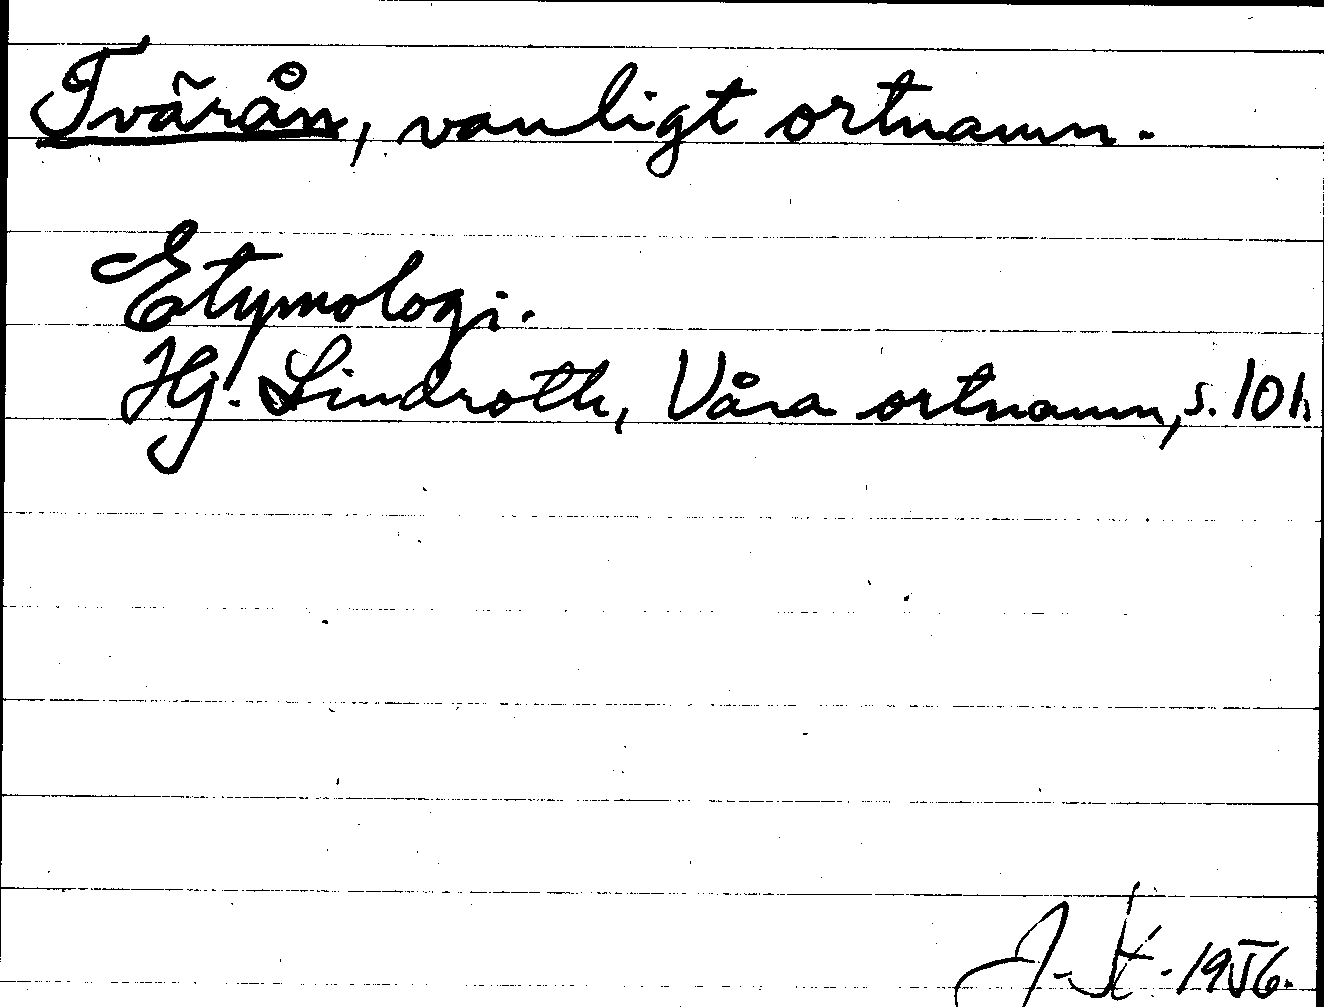 Tvärån, vanligt ortnamn.
Etymologi.
Hj. Lindroth, Våra ortnamn, s. 10
1956.